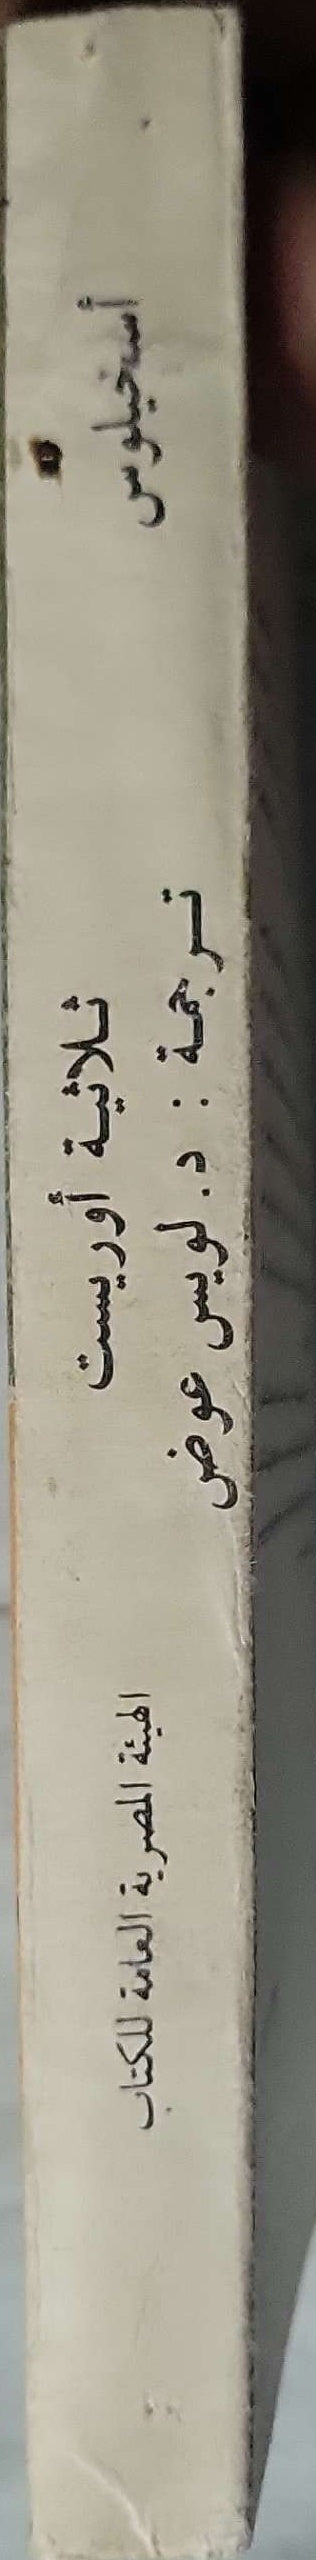 أسخيلوس
ثلاثية أوريست
ترجمة : د. لويس عوض
الهيئة المصرية العامة للكتاب